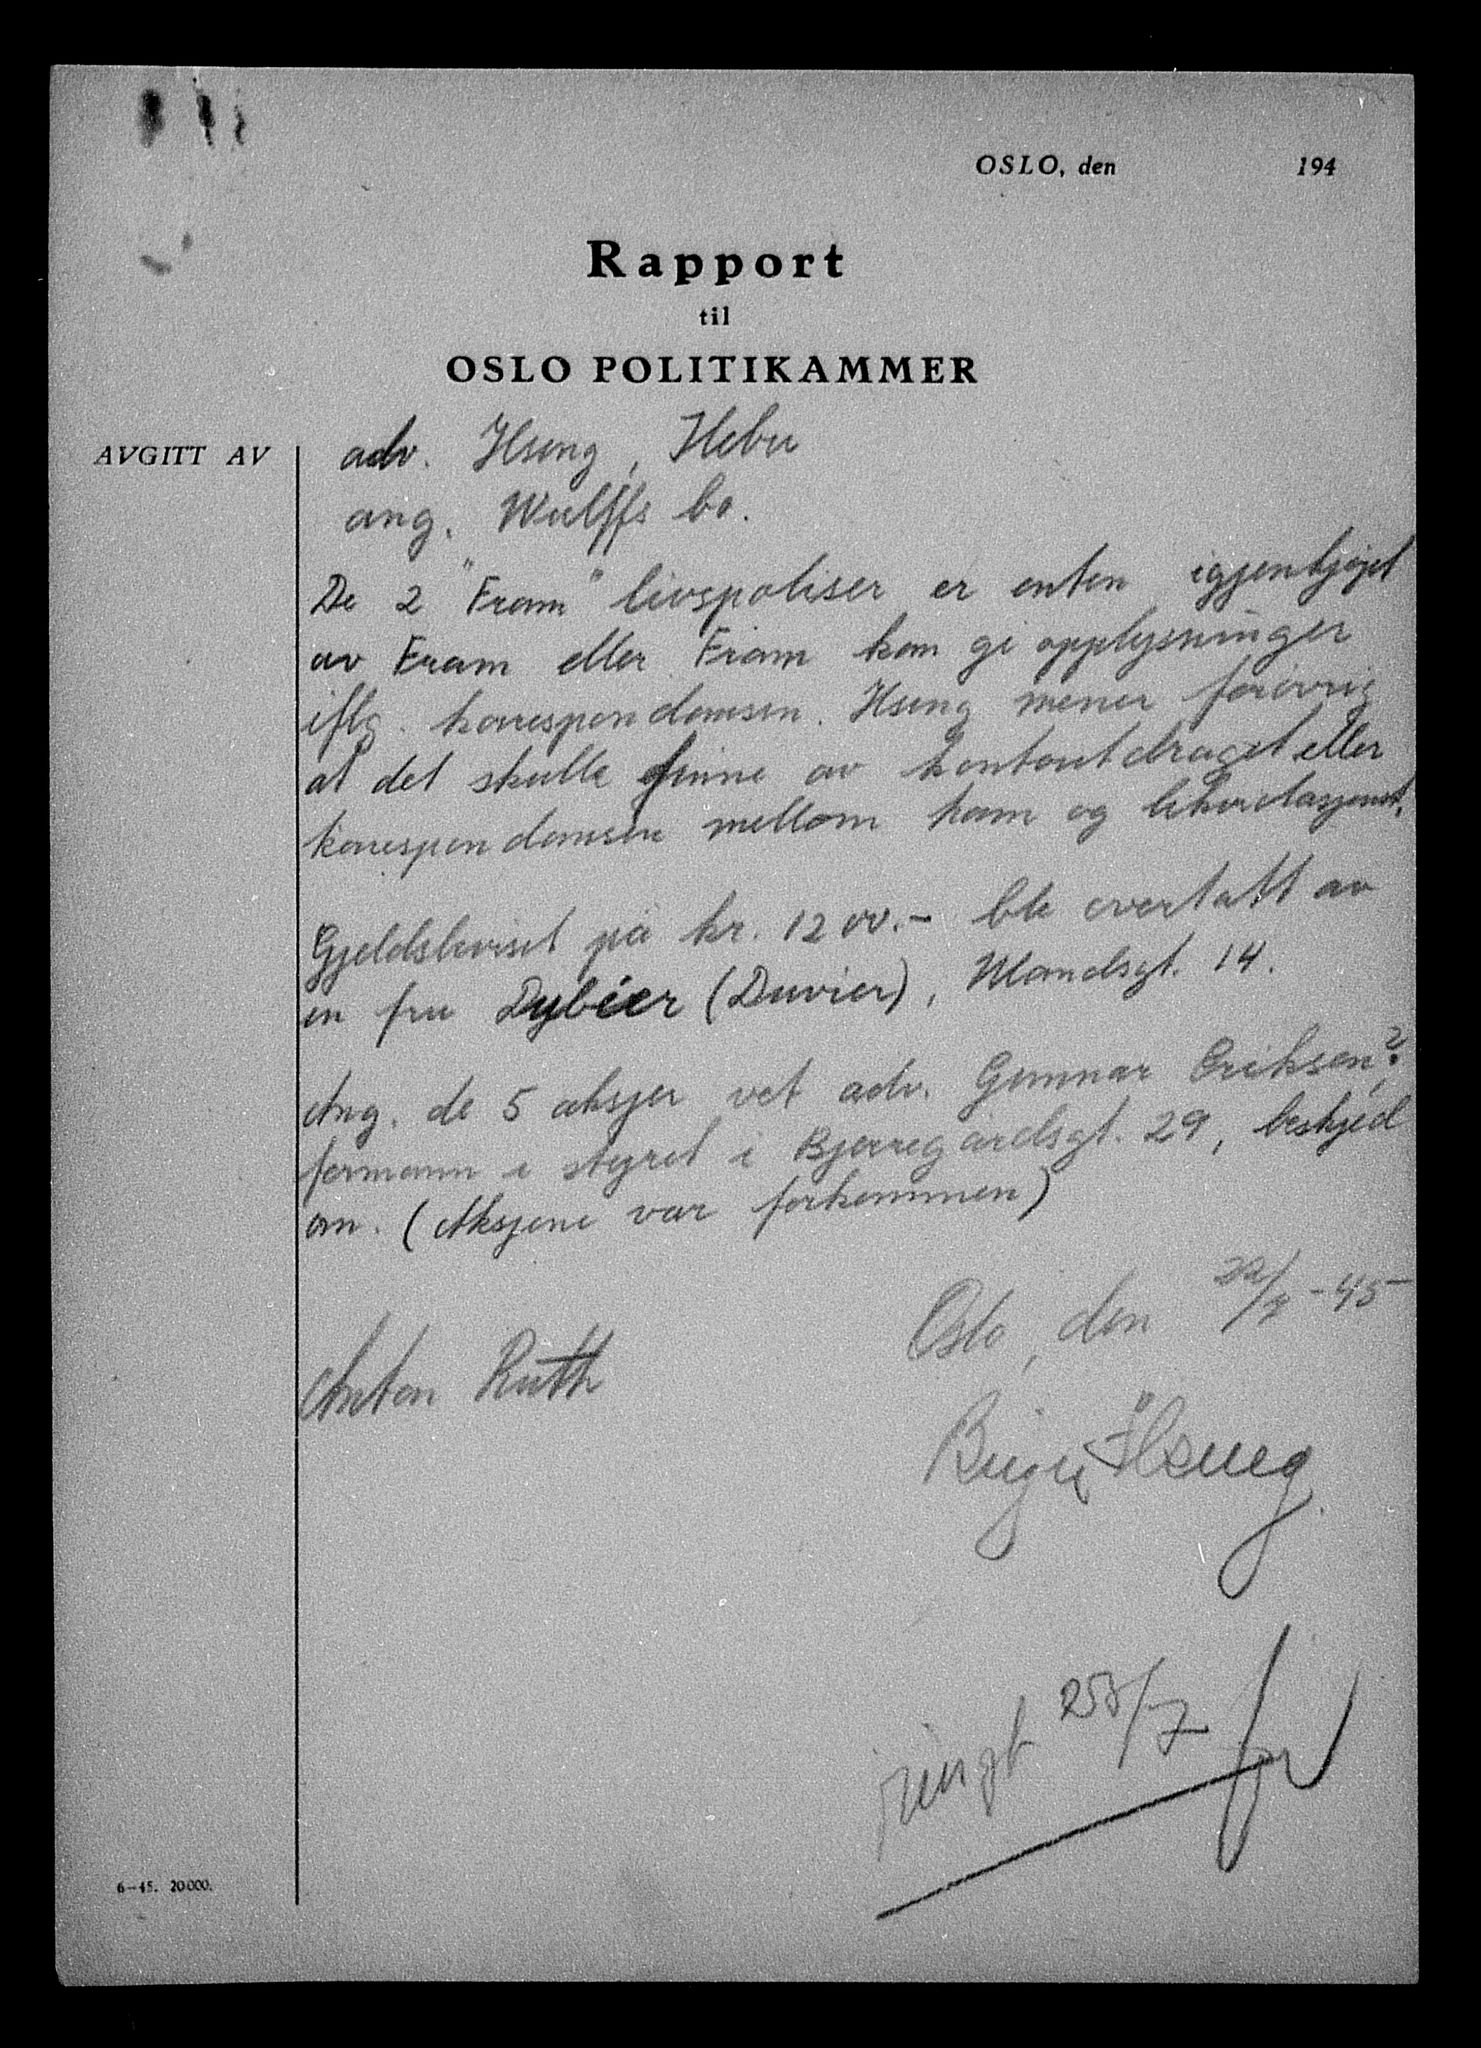 OSLO, den 194
Rapport
til
OSLO POLITIKAMMER
AVGITT AV
adv. Ilseng, Heber
ang. Wulffs bo.
De 2 "Fram" livspoliser er enten igjenkjøpt
av Fram eller Fram kan gi opplysninger
iflg. korrespondansen. Ilseng mener forøvrig
at det skulle finne av kontoutdraget eller
korrespondansen mellom ham og likvidasjonst.
Gjeldsbeviset på kr. 1200.- ble overtatt av
en fru Dybéer (Duvier), Mandsgt. 14.
Ang. de 5 aksjer vet adv. Gunnar Eriksen?,
formann i styret i Bjerregårdsgt. 29, beskjed
om. (Aksjene var forkommen)
Oslo, den 22/ -45
Anton Ruth
Birger Ilseng.
25/7
6-45. 20.000.